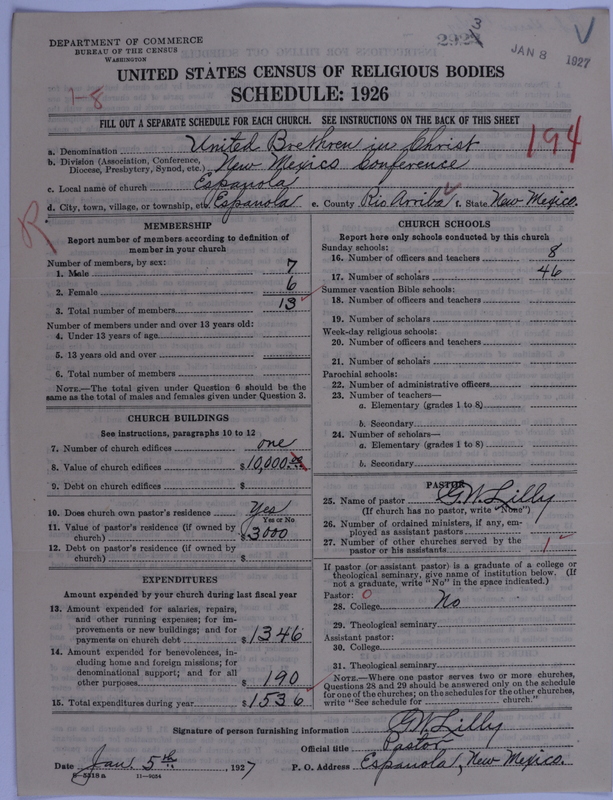 DEPARTMENT OF COMMERCE
BUREAU OF THE CENSUS
WASHINGTON
JAN 8 1927
UNITED STATES CENSUS OF RELIGIOUS BODIES
SCHEDULE: 1926
1-8
FILL OUT A SEPARATE SCHEDULE FOR EACH CHURCH. SEE INSTRUCTIONS ON THE BACK OF THIS SHEET
194
a. Denomination United Brethren in Christ
b. Division (Association, Conference, Diocese, Presbytery, Synod, etc.) New Mexico Conference
c. Local name of church Espanola
d. City, town, village, or township, etc. Espanola e. County Rio Arriba f. State New Mexico.
R
MEMBERSHIP
Report number of members according to definition of
member in your church
Number of members, by sex:
1. Male 7
2. Female 6
3. Total number of members 13
Number of members under and over 13 years old:
4. Under 13 years of age
5. 13 years old and over
6. Total number of members
NOTE.—The total given under Question 6 should be the
same as the total of males and females given under Question 3.
CHURCH BUILDINGS
See instructions, paragraphs 10 to 12
7. Number of church edifices one
8. Value of church edifices $10,000.00
9. Debt on church edifices $
10. Does church own pastor's residence Yes
Yes or No
11. Value of pastor's residence (if owned by
church) $3000
12. Debt on pastor's residence (if owned by
church) $
EXPENDITURES
Amount expended by your church during last fiscal year
13. Amount expended for salaries, repairs,
and other running expenses; for im-
provements or new buildings; and for
payments on church debt $1346
14. Amount expended for benevolences, in-
cluding home and foreign missions; for
denominational support; and for all
other purposes $190
15. Total expenditures during year $1536
CHURCH SCHOOLS
Report here only schools conducted by this church
Sunday schools:
16. Number of officers and teachers 8
17. Number of scholars 46
Summer vacation Bible schools:
18. Number of officers and teachers
19. Number of scholars
Week-day religious schools:
20. Number of officers and teachers
21. Number of scholars
Parochial schools:
22. Number of administrative officers
23. Number of teachers—
a. Elementary (grades 1 to 8)
b. Secondary
24. Number of scholars—
a. Elementary (grades 1 to 8)
b. Secondary
PASTOR
25. Name of pastor G. W. Lilly
(If church has no pastor, write "None")
26. Number of ordained ministers, if any, em-
ployed as assistant pastors
27. Number of other churches served by the
pastor or his assistants 1
If pastor (or assistant pastor) is a graduate of a college or
theological seminary, give name of institution below. (If
not a graduate, write "No" in the space indicated.)
Pastor: 0
28. College No
29. Theological seminary
Assistant pastor:
30. College
31. Theological seminary
NOTE.—Where one pastor serves two or more churches,
Questions 28 and 29 should be answered only on the schedule
for one of the churches; on the schedules for the other churches,
write "See schedule for church."
Signature of person furnishing information G. W. Lilly
Official title Pastor
Date Jan. 5th, 1927 P. O. Address Espanola, New Mexico.
8-5318a 11-9034